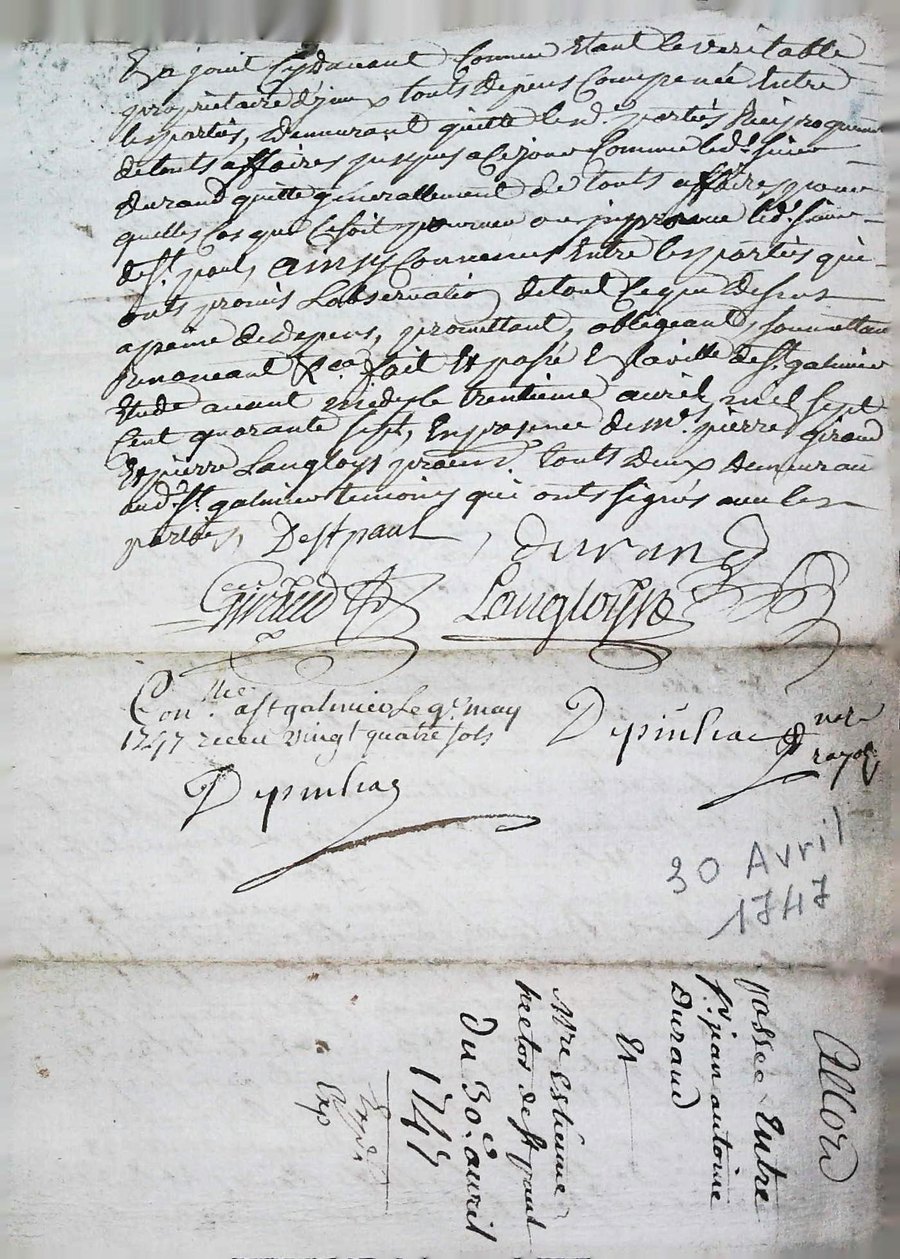 En joint Cydavant Comme Etant le veritable
proprietaire d'jeux touts depens Compencé Entre
lesparties, Demeurant quitte lesd. parties Reciproquem
detouts affaires jusques a Cejour Comme led. sieur
durand quitte generallement de touts affaires pour
quelles Cas que Cesoit led. sieur
de st. paul, ainsy Convenus Entre lesparties qui
onts promis Lobservation detout Ceque dessus
apeine dedepens, promettant, obligeant, soumettant
Renonceant &ca fait Et passé En laville de st. galmier
Etude avant midy le trentieme avril mil sept
Cent quarante sept, En presence de me. pierre giraud
Et pierre Langloys praend. touts deux demeurant
aud. st. galmier temoins qui onts signés avec les
parties, De st paul, durand
Giraud Langloys
Con.lle a st galmier Le 9e. may
1747 receu vingt quatre sols
Depinhac
Depinhac
nore
royal
30 Avril
1747
Accord
passée Entre
sr. jean antoine
Durand
Et
Mre Estienne
hector de st paul
du 30e. avril
1747
Expd.
Exp